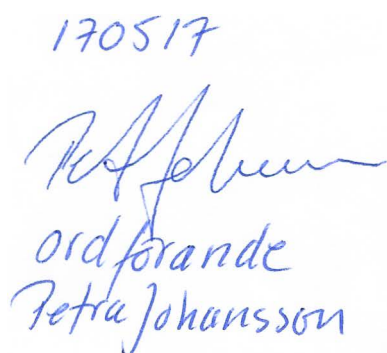 170517
ordförande
Petra Johansson